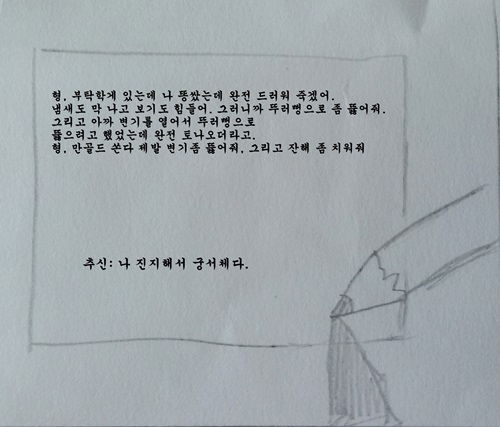 형, 부탁할게 있는데 나 똥쌌는데 완전 드러워 죽겠어.
냄새도 막 나고 보기도 힘들어. 그러니까 뚜러뻥으로 좀 뚫어줘.
그리고 아까 변기를 열어서 뚜러뻥으로
뚫으려고 했었는데 완전 토나오더라고.
형, 만골드 쏜다 제발 변기좀 뚫어줘, 그리고 잔해 좀 치워줘
추신: 나 진지해서 궁서체다.